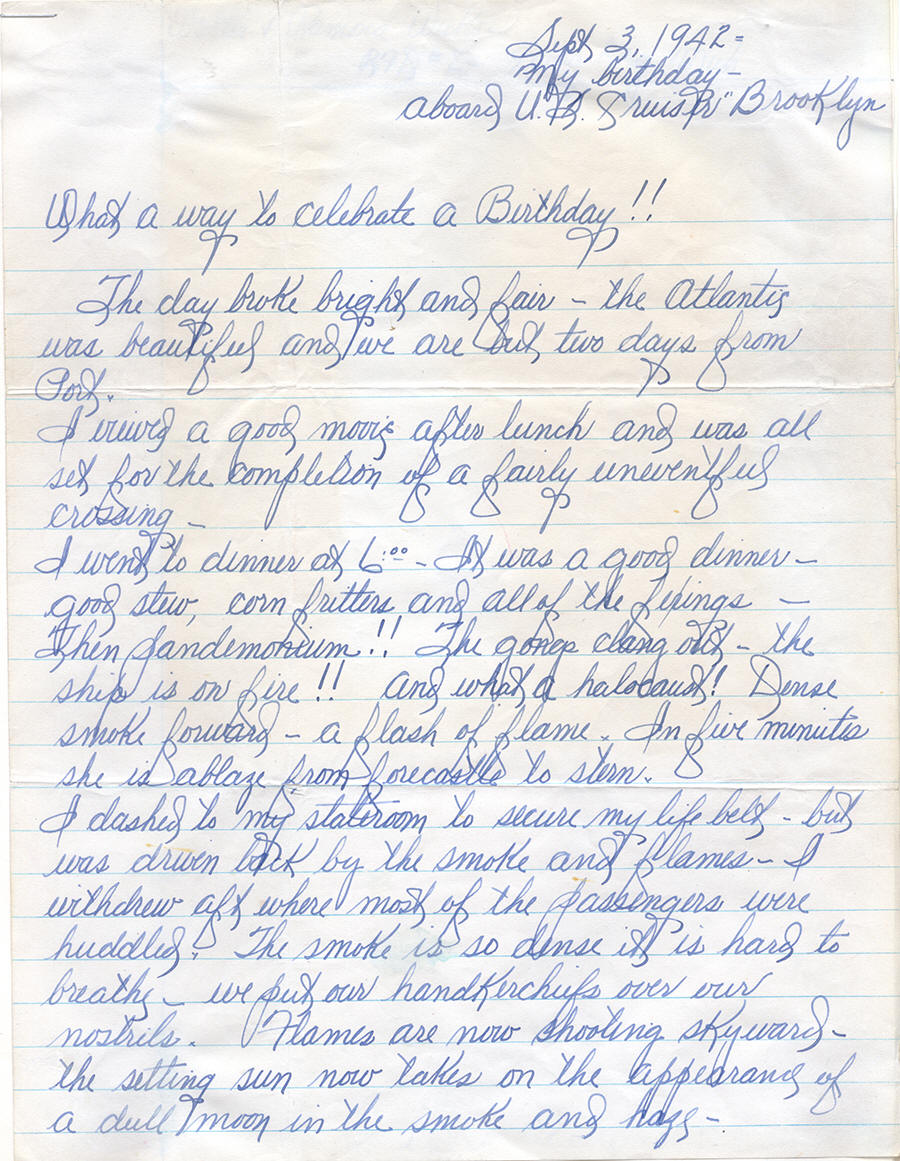 Sept 3, 1942 =
My birthday -
aboard U.S. Cruiser "Brooklyn
What a way to celebrate a Birthday!!
The day broke bright and fair - the Atlantic
was beautiful and we are but two days from
Port.
I viewed a good movie after lunch and was all
set for the completion of a fairly uneventful
crossing -
I went to dinner at 6:00 - It was a good dinner -
good stew, corn fritters and all of the fixings -
Then pandemonium!! The gongs clang out - the
ship is on fire!! And what a halocaust! Dense
smoke forward - a flash of flame. In five minutes
she is ablaze from forecastle to stern.
I dashed to my stateroom to secure my life belt - but
was driven back by the smoke and flames - I
withdrew aft where most of the passengers were
huddled. The smoke is so dense it is hard to
breathe - we put our handkerchiefs over our
nostrils. Flames are now shooting skyward -
the setting sun now takes on the appearance of
a dull moon in the smoke and haze -